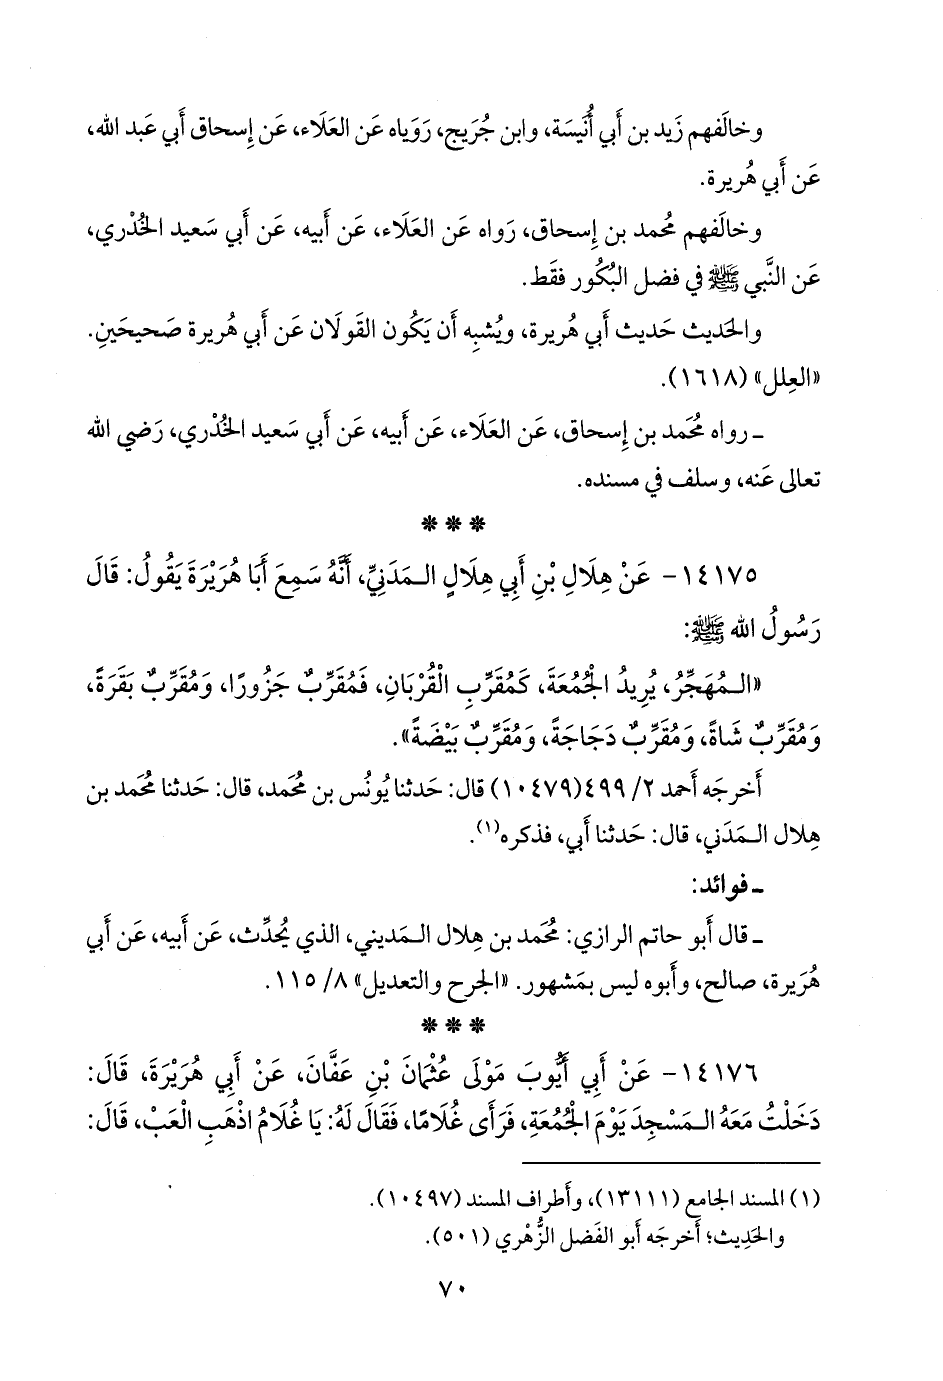 وخالَفهم زَيد بن أَبي أُنَيسَة، وابن جُرَيج، رَوَياه عَن العَلَاء، عَن إِسحاق أَبي عَبد الله،
عَن أَبي هُريرة.
وخالَفهم مُحمد بن إِسحاق، رَواه عَن العَلَاء، عَن أَبيه، عَن أَبي سَعيد الخُدْري،
عَن النَّبي ﷺ في فضل البُكُور فقَط.
والحَديث حَديث أَبي هُريرة، ويُشبِه أَن يَكُون القَولَان عَن أَبي هُريرة صَحيحَينِ.
«العِلل» (١٦١٨).
ـ رواه مُحمَد بن إِسحاق، عَن العَلَاء، عَن أَبيه، عَن أَبي سَعيد الخُدْري، رَضي الله
تعالى عَنه، وسلف في مسنده.
* * *
١٤١٧٥- عَنْ هِلَالِ بْنِ أَبِي هِلَالٍ الـمَدَنِيِّ، أَنَّهُ سَمِعَ أَبَا هُرَيْرَةَ يَقُولُ: قَالَ
رَسُولُ الله ﷺ:
«الـمُهَجِّرُ، يُرِيدُ الجُمُعَةَ، كَمُقَرِّبِ الْقُرْبَانِ، فَمُقَرِّبٌ جَزُورًا، وَمُقَرِّبٌ بَقَرَةً،
وَمُقَرِّبٌ شَاةً، وَمُقَرِّبٌ دَجَاجَةً، وَمُقَرِّبٌ بَيْضَةً».
أَخرجَه أَحمد ٢/ ٤٩٩(١٠٤٧٩) قال: حَدثنا يُونُس بن مُحمَد، قال: حَدثنا مُحمَد بن
هِلال الـمَدَني، قال: حَدثنا أَبي، فذكره(١).
ـ فوائد:
ـ قال أَبو حاتم الرازي: مُحمَد بن هِلال الـمَديني، الذي يُحدِّث، عَن أَبيه، عَن أَبي
هُرَيرة، صالح، وأَبوه ليس بمَشهور. «الجرح والتعديل» ٨/ ١١٥.
* * *
١٤١٧٦- عَنْ أَبِي أَيُّوبَ مَوْلَى عُثْمَانَ بْنِ عَفَّانَ، عَنْ أَبِي هُرَيْرَةَ، قَالَ:
دَخَلْتُ مَعَهُ الـمَسْجِدَ يَوْمَ الجُمُعَةِ، فَرَأَى غُلَامًا، فَقَالَ لَهُ: يَا غُلَامُ اذْهَبِ الْعَبْ، قَالَ:
(١) المسند الجامع (١٣١١١)، وأَطراف المسند (١٠٤٩٧).
والحَدِيث؛ أَخرجَه أَبو الفَضل الزُّهْري (٥٠١).
٧٠